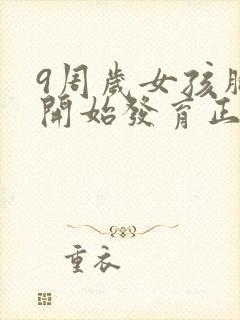 9周歲女孩胸
開始發育正
重衣